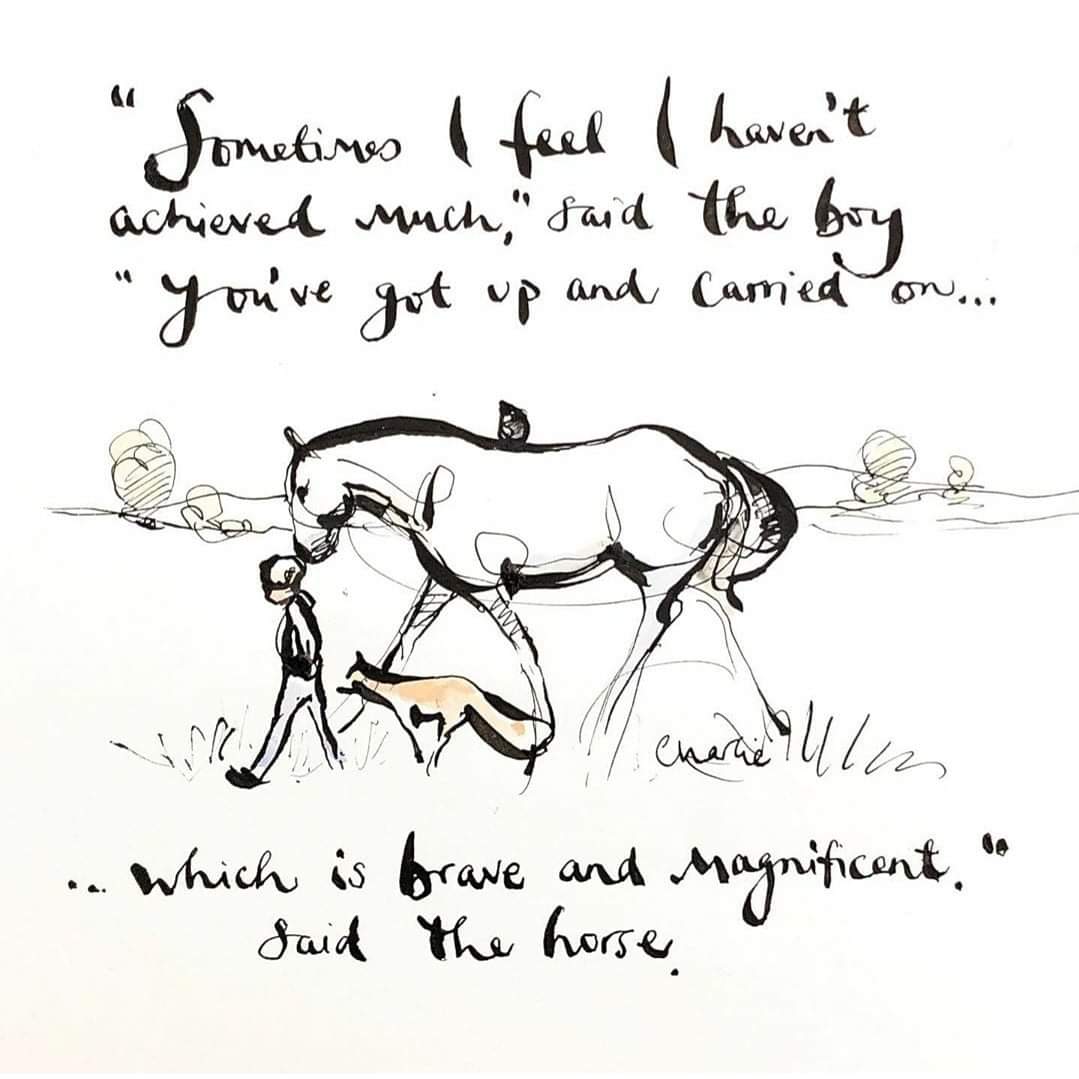 “Sometimes I feel I haven't
achieved much," said the boy
“You've got up and carried on...
Charlie
... which is brave and magnificent."
said the horse.